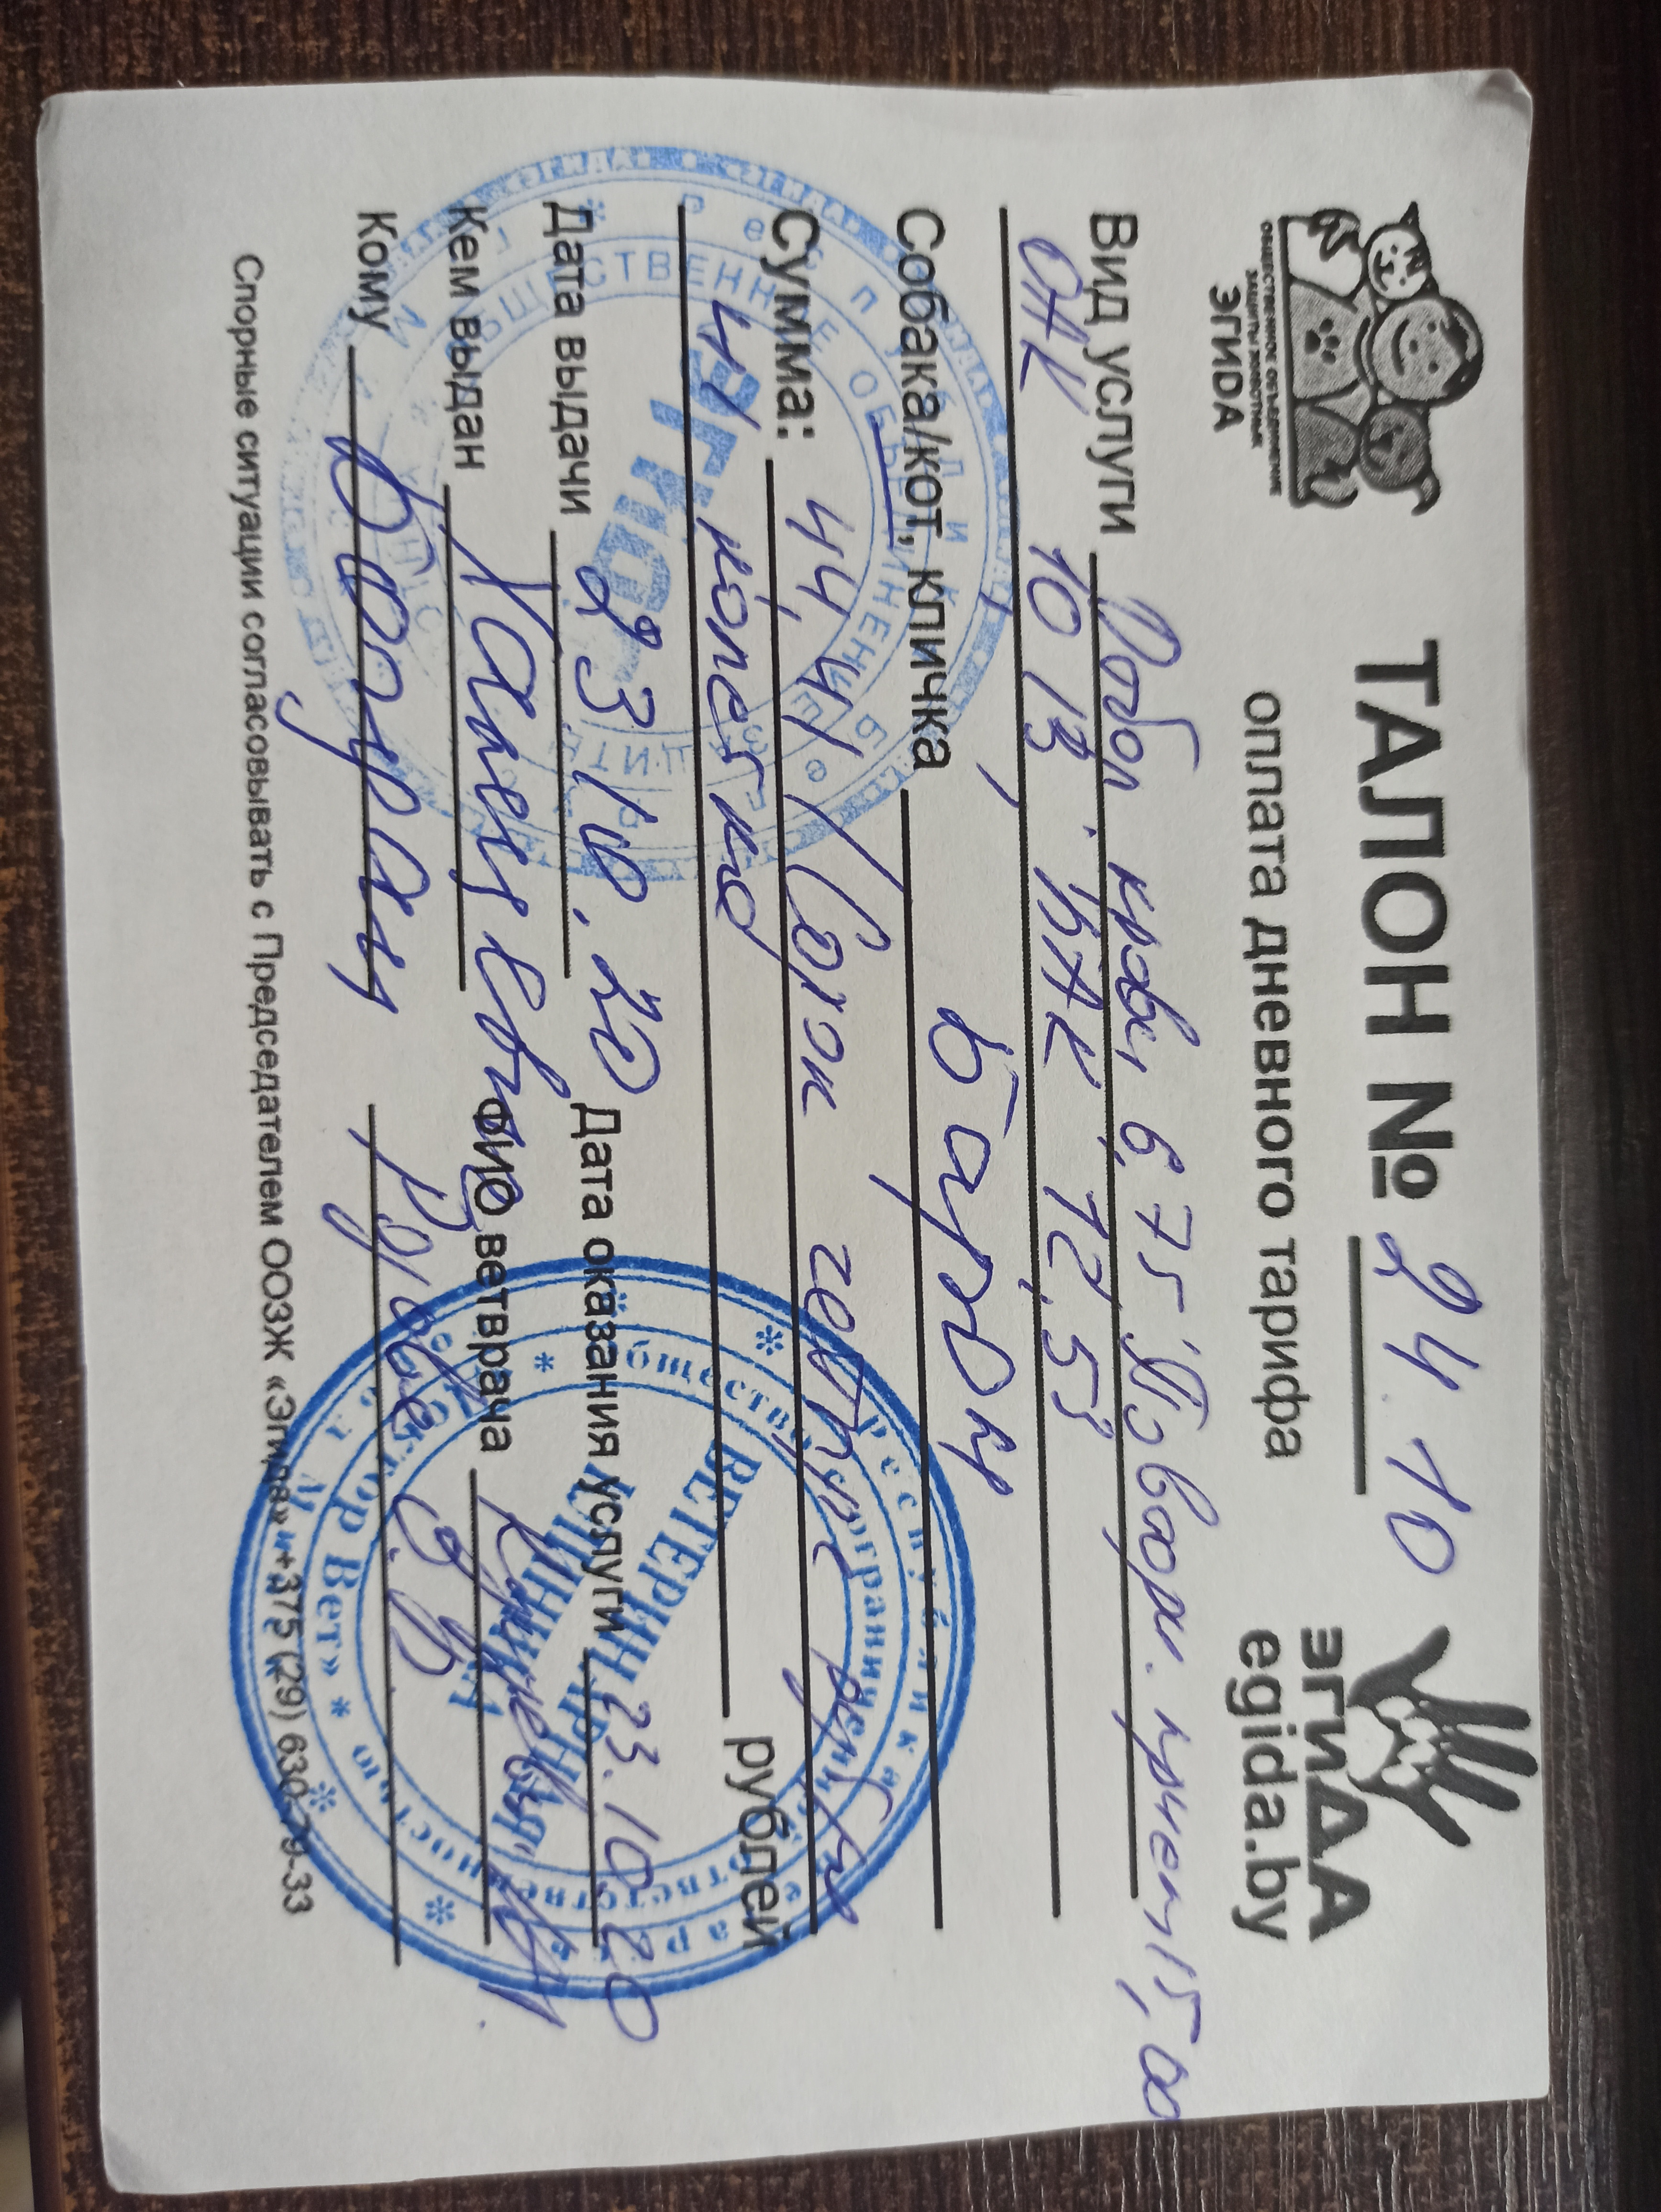 ОБЩЕСТВЕННОЕ ОБЪЕДИНЕНИЕ
ЗАЩИТЫ ЖИВОТНЫХ
ЭГИДА
ТАЛОН № 24.10
оплата дневного тарифа
ЭГИДА
egida.by
Вид услуги кровь 6,75, прием 15,00
ОАК 10 13, БАК 12,53
Собака/кот, кличка
Сумма: 44,41 (Сорок четыре рубля
41 копейка рублей
Дата выдачи 23.10.20 Дата оказания услуги 23.10.20
Кем выдан ФИО ветврача
Кому В.В.
Спорные ситуации согласовывать с Председателем ООЗЖ «Эгида» +375 (29) 630-79-33
Республика Беларусь
ОБЩЕСТВЕННОЕ ОБЪЕДИНЕНИЕ
ЭГИДА
Республика Беларусь
Общество с ограниченной ответственностью
«Доктор Вет»
ВЕТЕРИНАРНАЯ
КЛИНИКА